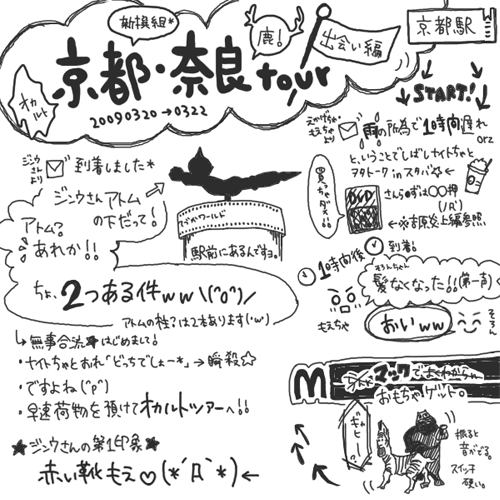 新撰組*
鹿!
出会い編
京都駅
京都・奈良tour
20090320→0322
オカルト
START!
ジュウさんより
到着しました*
ジュウさんアトムの下だって!
アトム?
あれか!!
駅前にあるんです。
ちょ、2つある件ww\(^o^)/
アトムの柱?は2本あります('ω')
↳無事合流★はじめまして!
・ナイトちゃとおれ「どっちでしょー*」→瞬殺☆
・ですよね('p')
・早速荷物を預けてオカルトツアーへ!!
★ジュウさんの第1印象★
赤い靴もえ♡(*´Д`*)←
もえちゃより
雨の所為で1時間遅れ
orz
と、いうことでしばしナイトちゃと
ヲタトーク in スタバ☆
買っちゃダメ!!
DVD
さらぬずは○○押
(ノД`)
←※吉原炎上編参照
1時間後
到着。
髪なくなった!!(第一声)
もえちゃ
おいww
M
マックでよくわからん
おもちゃゲット。
ギャヒー。
振ると
音がでる。
スイッチ
硬い。